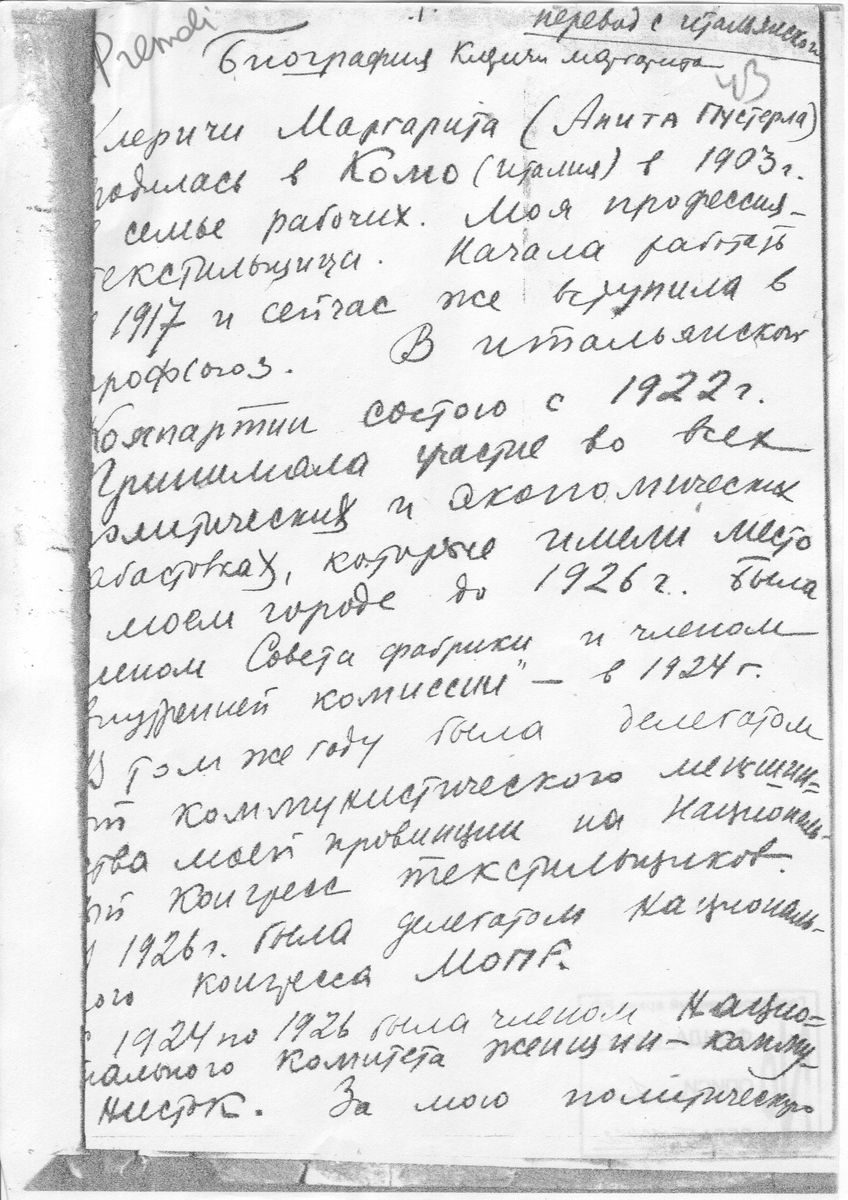 Premoli
1.
перевод с итальянского
Биография Клеричи Маргарита
Клеричи Маргарита (Анита Пустерла)
родилась в Комо (италия) в 1903 г.
семье рабочих. Моя профессия –
текстильщица. Начала работать
1917 и сейчас же вступила в
профсоюз. В итальянской
Компартии состою с 1922 г.
Принимала участие во всех
политических и экономических
забастовках, которые имели место
моем городе до 1926 г. Была
членом Совета фабрики и членом
внутренней комиссии" – в 1924 г.
В том же году была делегатом
от коммунистического меньшин=
ства моей провинции на Националь-
ый Конгресс текстильщиков.
1926 г. была делегатом националь-
ого конгресса МОПР.
с 1924 по 1926 была членом Нацио=
нального Комитета женщин – комму-
нисток. За мою политическую